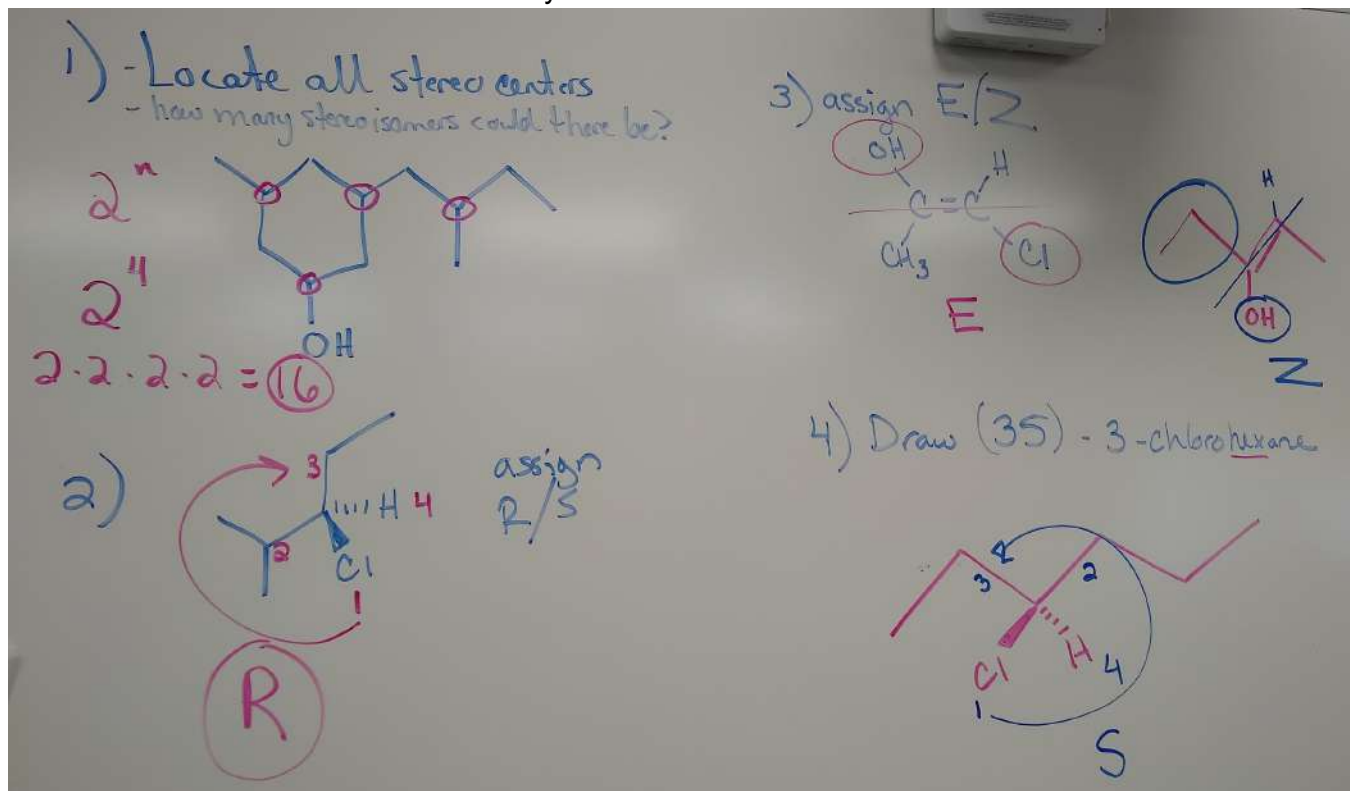 1) - Locate all stereo centers
- how many stereoisomers could there be?
2^n
2^4
OH
2·2·2·2 = 16
2)
3
H 4
2
Cl
1
R
assign
R/S
3) assign E/Z
OH
H
C=C
CH3
Cl
E
H
OH
Z
4) Draw (3S) - 3-chlorohexane
3
2
Cl
H
4
1
S